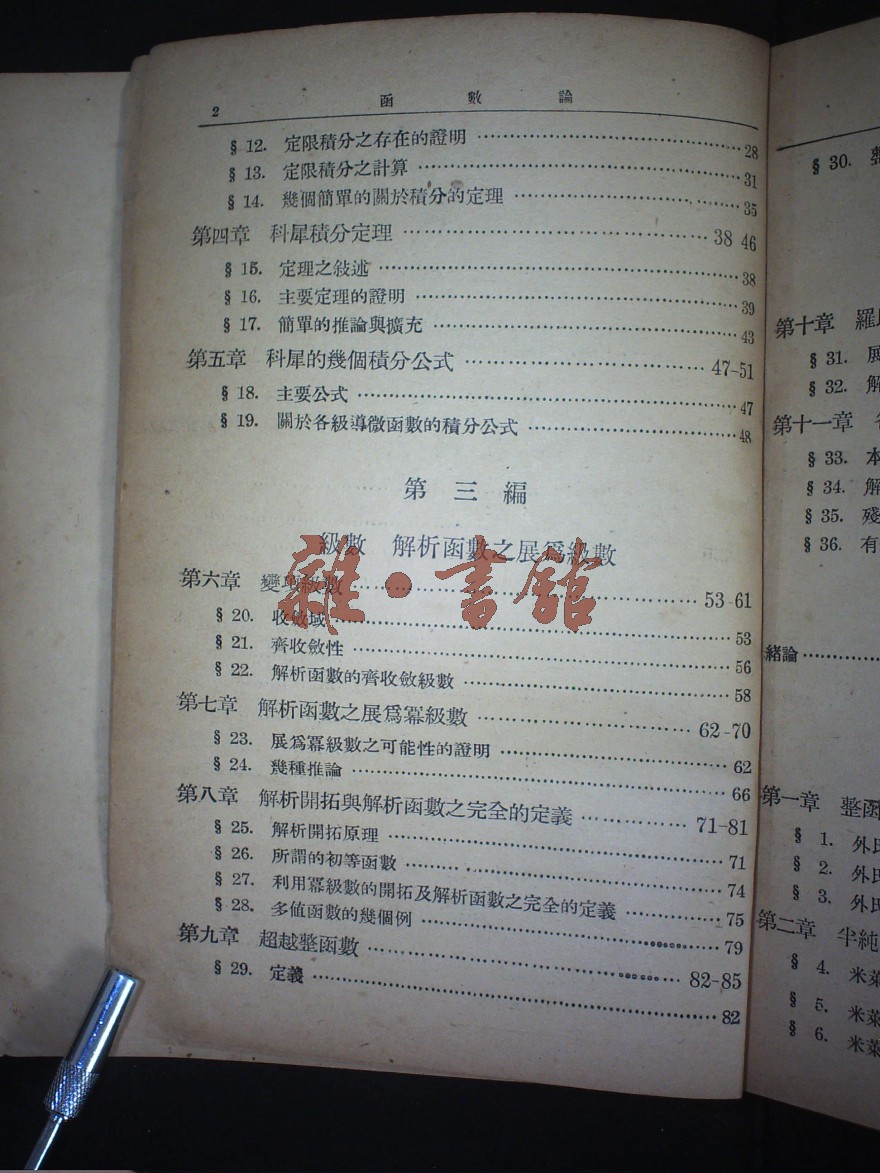 2 函 數 論
§ 12. 定限積分之存在的證明 28
§ 13. 定限積分之計算 31
§ 14. 幾個簡單的關於積分的定理 35
第四章 科犀積分定理 38 46
§ 15. 定理之敍述 38
§ 16. 主要定理的證明 39
§ 17. 簡單的推論與擴充 43
第五章 科犀的幾個積分公式 47-51
§ 18. 主要公式 47
§ 19. 關於各級導微函數的積分公式 48
第 三 編
級數 解析函數之展爲級數
第六章 變項級數 53-61
§ 20. 收斂域 53
§ 21. 齊收斂性 56
§ 22. 解析函數的齊收斂級數 58
第七章 解析函數之展爲冪級數 62-70
§ 23. 展爲冪級數之可能性的證明 62
§ 24. 幾種推論 66
第八章 解析開拓與解析函數之完全的定義 71-81
§ 25. 解析開拓原理 71
§ 26. 所謂的初等函數 74
§ 27. 利用冪級數的開拓及解析函數之完全的定義 75
§ 28. 多值函數的幾個例 79
第九章 超越整函數 82-85
§ 29. 定義 82
雜·書館
§ 30.
第十章 羅
§ 31. 展
§ 32. 解
第十一章
§ 33. 本
§ 34. 解
§ 35. 殘
§ 36. 有
緒論
第一章 整函
§ 1. 外氏
§ 2. 外氏
§ 3. 外氏
第二章 半純
§ 4. 米萊
§ 5. 米萊
§ 6. 米萊